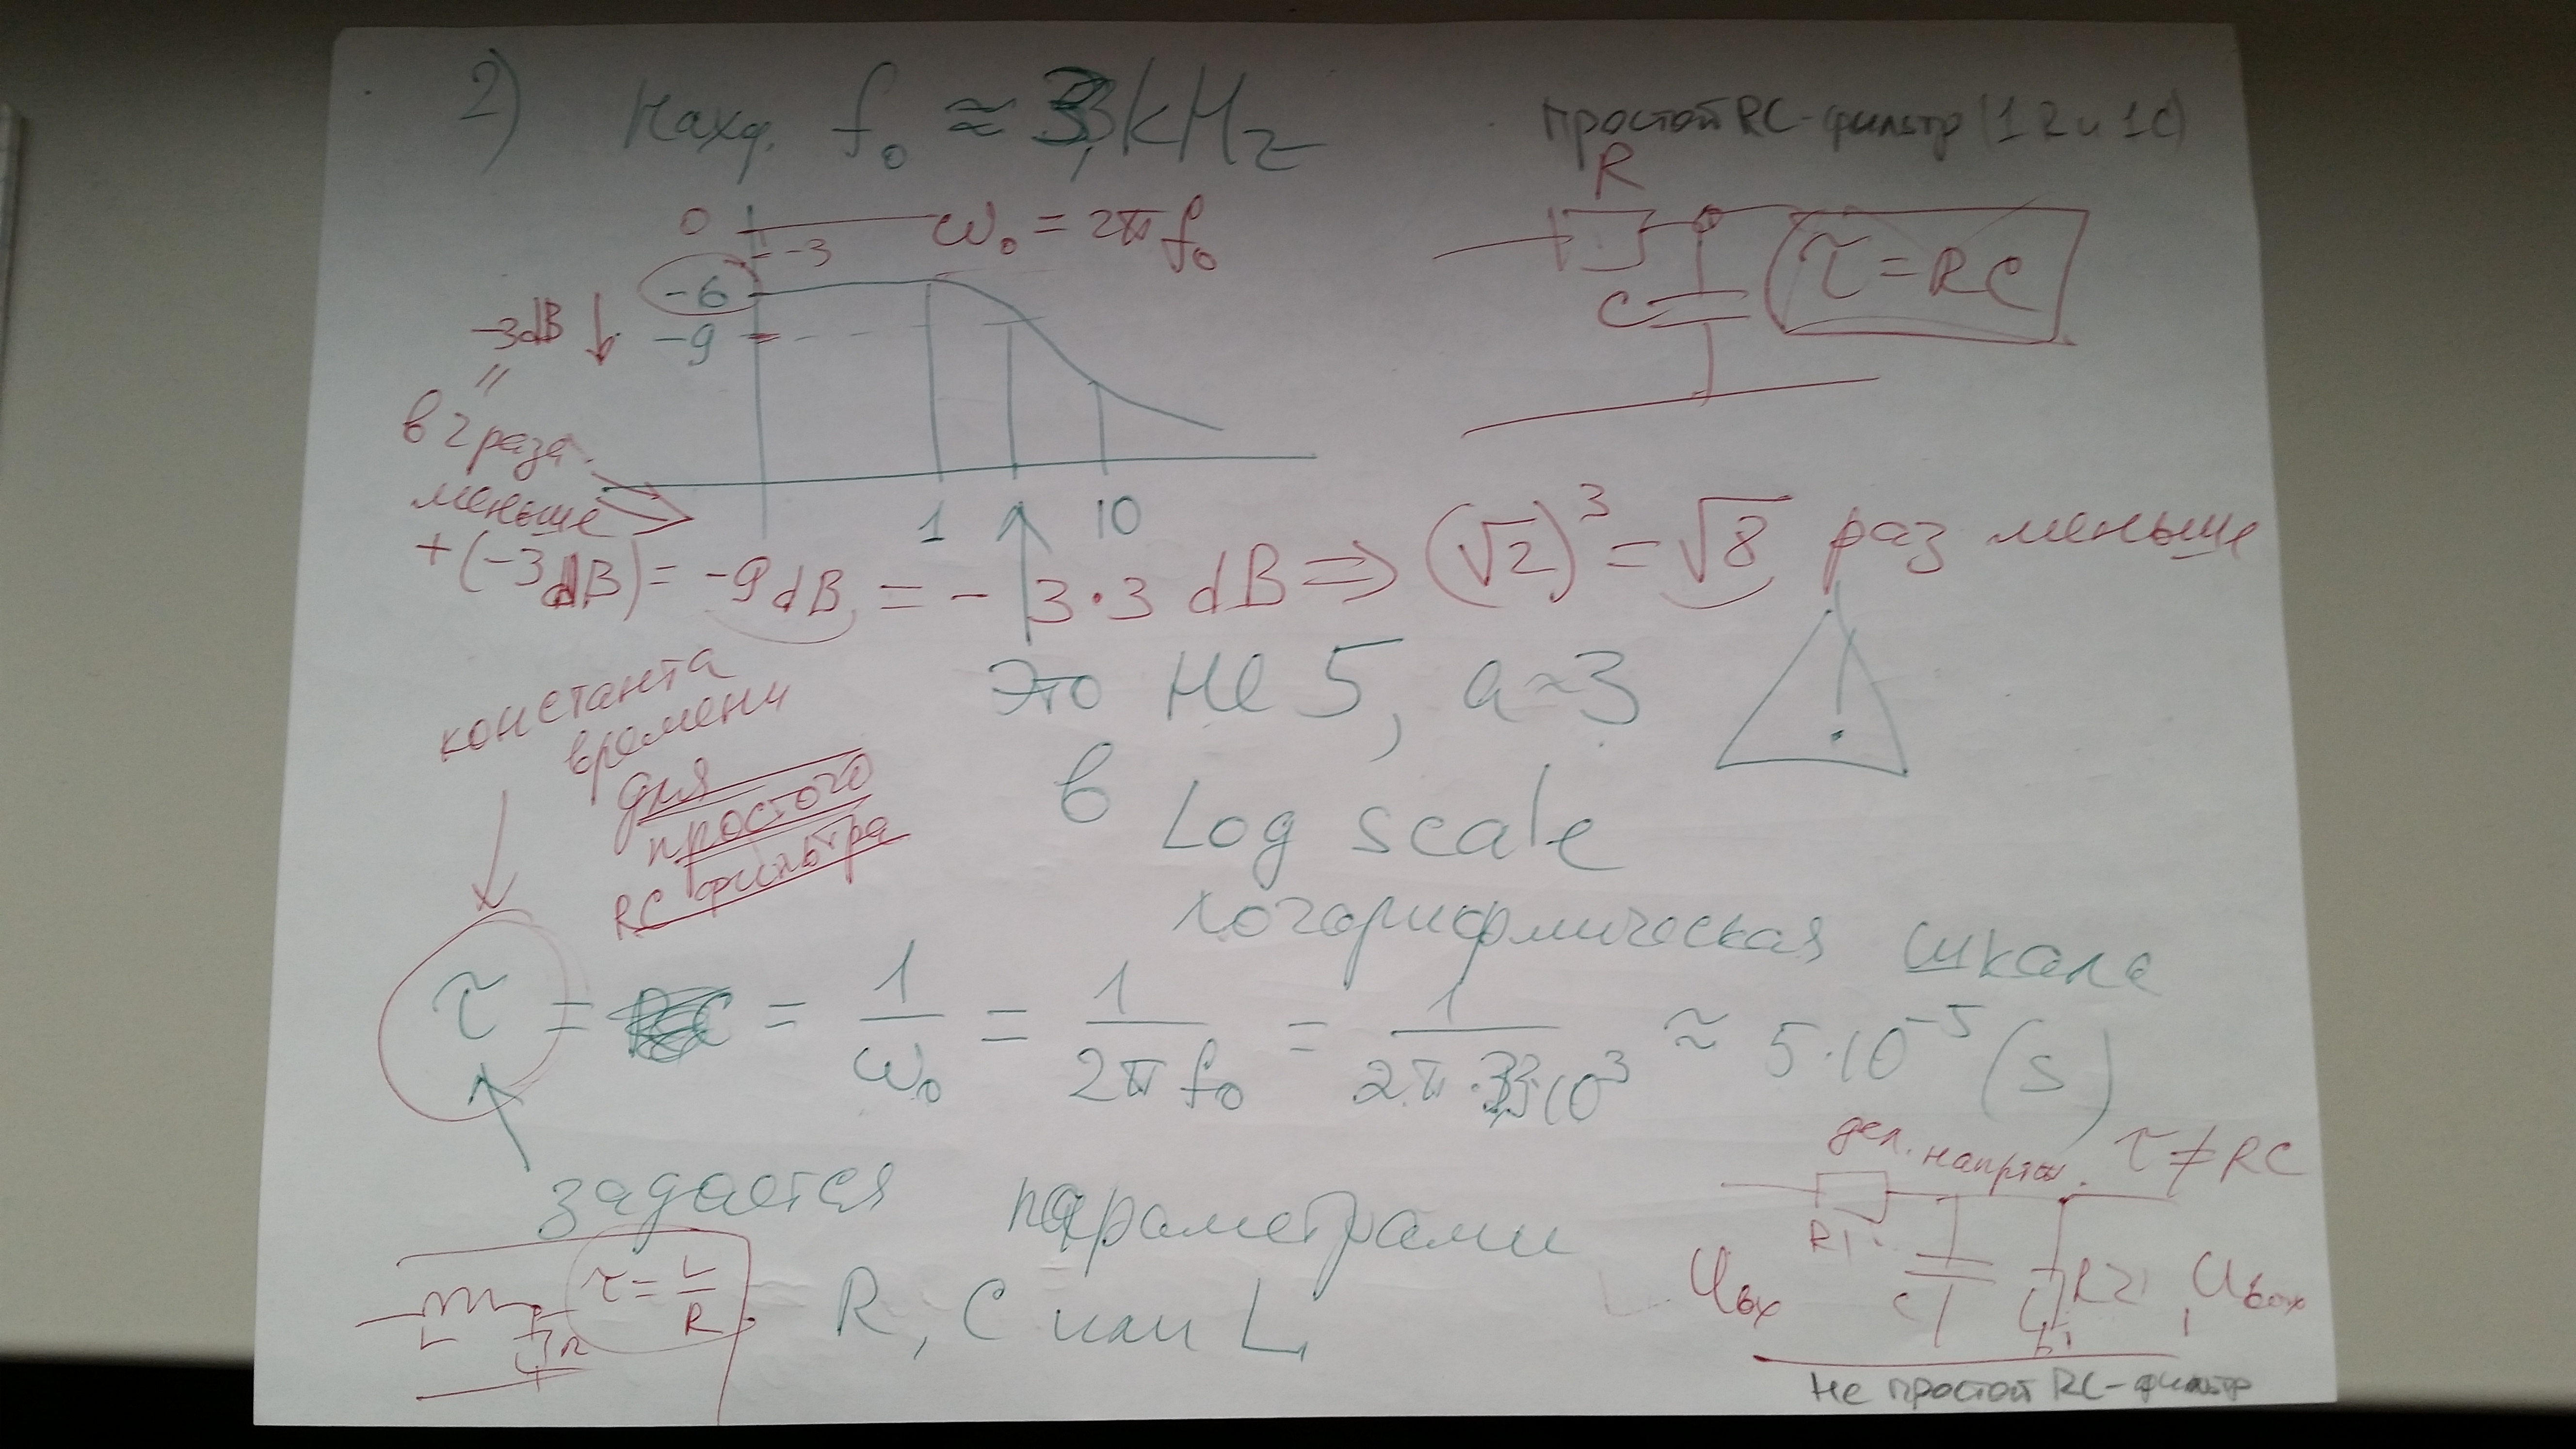 2) Нахд. f₀ ≈ 3,3 kHz
простой RC-фильтр (1R и 1C)
R
0
-3
ω₀ = 2π f₀
-6
-9
-3dB ↓
"
в 2 раза
меньше
C
τ = RC
1
10
+(-3dB) = -9dB = -3·3 dB ⇒ (√2)³ = √8 раз меньше
это не 5, а ≈ 3
!
в Log scale
логарифмическая шкала
константа
времени
для
простого
RC фильтра
τ = = 1/ω₀ = 1/(2π f₀) = 1/(2π·3,3·10³) ≈ 5·10⁻⁵ (s)
задается параметрами
R, C или L
L
R
τ = L/R
дел. напр. τ ≠ RC
R1
Uвх
C
R2
Uвых
Не простой RC-фильтр